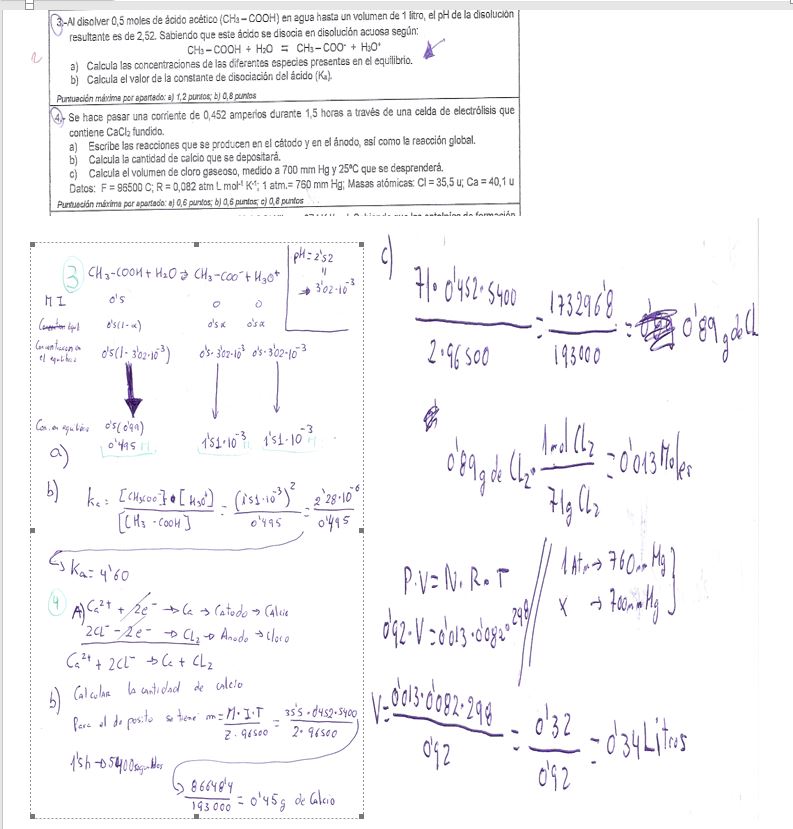 3.-Al disolver 0,5 moles de ácido acético (CH₃ – COOH) en agua hasta un volumen de 1 litro, el pH de la disolución
resultante es de 2,52. Sabiendo que este ácido se disocia en disolución acuosa según:
CH₃ – COOH + H₂O ⇌ CH₃ – COO⁻ + H₃O⁺
a) Calcula las concentraciones de las diferentes especies presentes en el equilibrio.
b) Calcula el valor de la constante de disociación del ácido (Kₐ).
Puntuación máxima por apartado: a) 1,2 puntos; b) 0,8 puntos
4.- Se hace pasar una corriente de 0,452 amperios durante 1,5 horas a través de una celda de electrólisis que
contiene CaCl₂ fundido.
a) Escribe las reacciones que se producen en el cátodo y en el ánodo, así como la reacción global.
b) Calcula la cantidad de calcio que se depositará.
c) Calcula el volumen de cloro gaseoso, medido a 700 mm Hg y 25ºC que se desprenderá.
Datos: F = 96500 C; R = 0,082 atm L mol⁻¹ K⁻¹; 1 atm.= 760 mm Hg; Masas atómicas: Cl = 35,5 u; Ca = 40,1 u
Puntuación máxima por apartado: a) 0,6 puntos; b) 0,6 puntos; c) 0,8 puntos
3 CH₃-COOH + H₂O ⇌ CH₃-COO⁻ + H₃O⁺
pH = 2'52
"
→ 3'02·10⁻³
M I 0's 0 0
0's(1-α) 0'sα 0'sα
Concentración en
el equilibrio 0's(1-3'02·10⁻³) 0's·3'02·10⁻³ 0's·3'02·10⁻³
0's(0'99)
0'495 M 1's1·10⁻³ M 1's1·10⁻³ M
a)
b) Ka = [CH₃COO⁻]·[H₃O⁺] / [CH₃-COOH] = (1's1·10⁻³)² / 0'495 = 2'28·10⁻⁶ / 0'495
Ka = 4'60
4 A) Ca²⁺ + 2e⁻ → Ca → Catodo → Calcio
2Cl⁻ - 2e⁻ → CL₂ → Anodo → Cloro
Ca²⁺ + 2Cl⁻ → Ca + CL₂
b) Calcular la cantidad de calcio
Para el deposito se tiene m = M·I·T / 2·96500 = 35's·0'452·5400 / 2·96500
1's h → 5400 segundos
86648'4 / 193000 = 0'45g de Calcio
c)
71·0'452·5400 / 2·96500 = 173296'8 / 193000 = 0'89 g de CL
0'89g de CL₂ · 1mol CL₂ / 71g CL₂ = 0'013 Moles
P·V = N·R·T
0'92·V = 0'013·0'082·298
1 Atm → 760mm Hg
x → 700mm Hg
V = 0'013·0'082·298 / 0'92 = 0'32 / 0'92 = 0'34 Litros